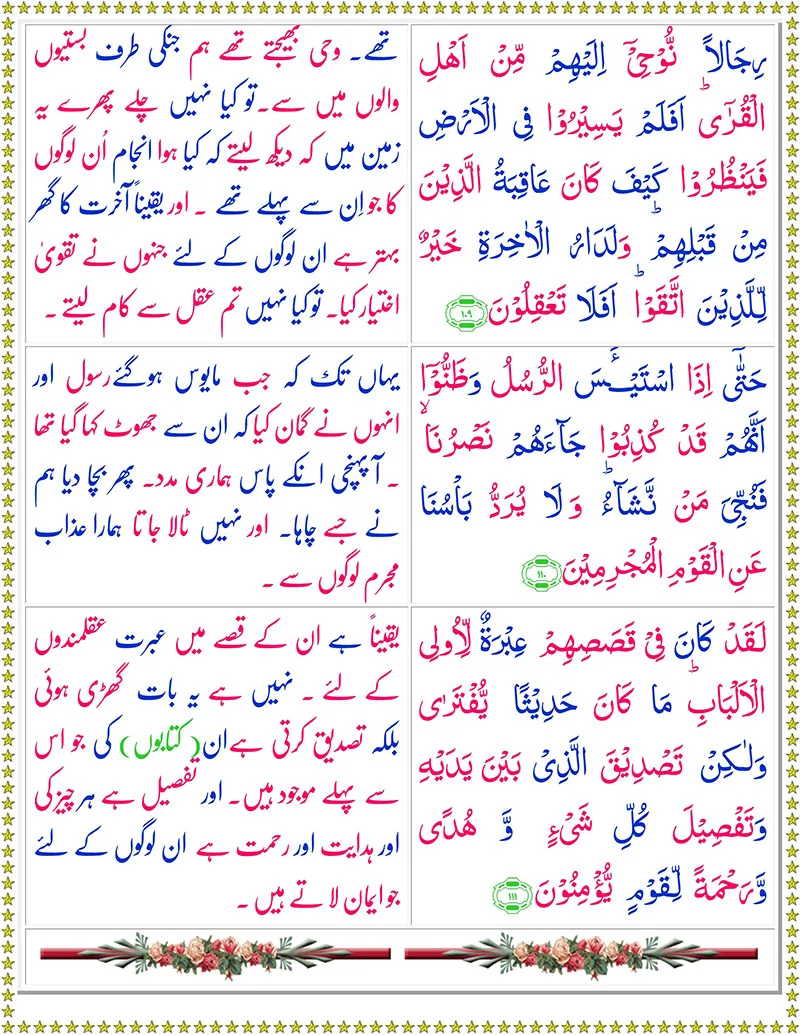 رِجَالاً نُّوْحِیْۤ اِلَیْهِمْ مِّنْ اَهْلِ
الْقُرٰی ؕ اَفَلَمْ یَسِیْرُوْا فِی الْاَرْضِ
فَیَنْظُرُوْا کَیْفَ کَانَ عَاقِبَةُ الَّذِیْنَ
مِنْ قَبْلِهِمْ ؕ وَلَدَارُ الْاٰخِرَةِ خَیْرٌ
لِّلَّذِیْنَ اتَّقَوْا ؕ اَفَلَا تَعْقِلُوْنَ ﴿۱۰۹﴾
تھے۔ وحی بھیجتے تھے ہم جنکی طرف بستیوں
والوں میں سے۔ تو کیا نہیں چلے پھرے یہ
زمین میں کہ دیکھ لیتے کہ کیا ہوا انجام اُن لوگوں
کا جو اِن سے پہلے تھے ۔ اور یقیناً آخرت کا گھر
بہتر ہے ان لوگوں کے لئے جنہوں نے تقویٰ
اختیار کیا۔ تو کیا نہیں تم عقل سے کام لیتے ۔
حَتّٰۤی اِذَا اسْتَیْـَٔسَ الرُّسُلُ وَظَنُّوْۤا
اَنَّهُمْ قَدْ کُذِبُوْا جَآءَهُمْ نَصْرُنَا ۙ
فَنُجِّیَ مَنْ نَّشَآءُ ؕ وَلَا یُرَدُّ بَاْسُنَا
عَنِ الْقَوْمِ الْمُجْرِمِیْنَ ﴿۱۱۰﴾
یہاں تک کہ جب مایوس ہوگئے رسول اور
انہوں نے گمان کیا کہ ان سے جھوٹ کہا گیا تھا
۔ آ پہنچی انکے پاس ہماری مدد۔ پھر بچا دیا ہم
نے جسے چاہا۔ اور نہیں ٹالا جاتا ہمارا عذاب
مجرم لوگوں سے ۔
لَقَدْ کَانَ فِیْ قَصَصِهِمْ عِبْرَةٌ لِّاُولِی
الْاَلْبَابِ ؕ مَا کَانَ حَدِیْثًا یُّفْتَرٰی
وَلٰکِنْ تَصْدِیْقَ الَّذِیْ بَیْنَ یَدَیْهِ
وَتَفْصِیْلَ کُلِّ شَیْءٍ وَّ هُدًی
وَّرَحْمَةً لِّقَوْمٍ یُّؤْمِنُوْنَ ﴿۱۱۱﴾
یقیناً ہے ان کے قصے میں عبرت عقلمندوں
کے لئے ۔ نہیں ہے یہ بات گھڑی ہوئی
بلکہ تصدیق کرتی ہے ان (کتابوں) کی جو اس
سے پہلے موجود ہیں۔ اور تفصیل ہے ہر چیز کی
اور ہدایت اور رحمت ہے ان لوگوں کے لئے
جو ایمان لاتے ہیں ۔